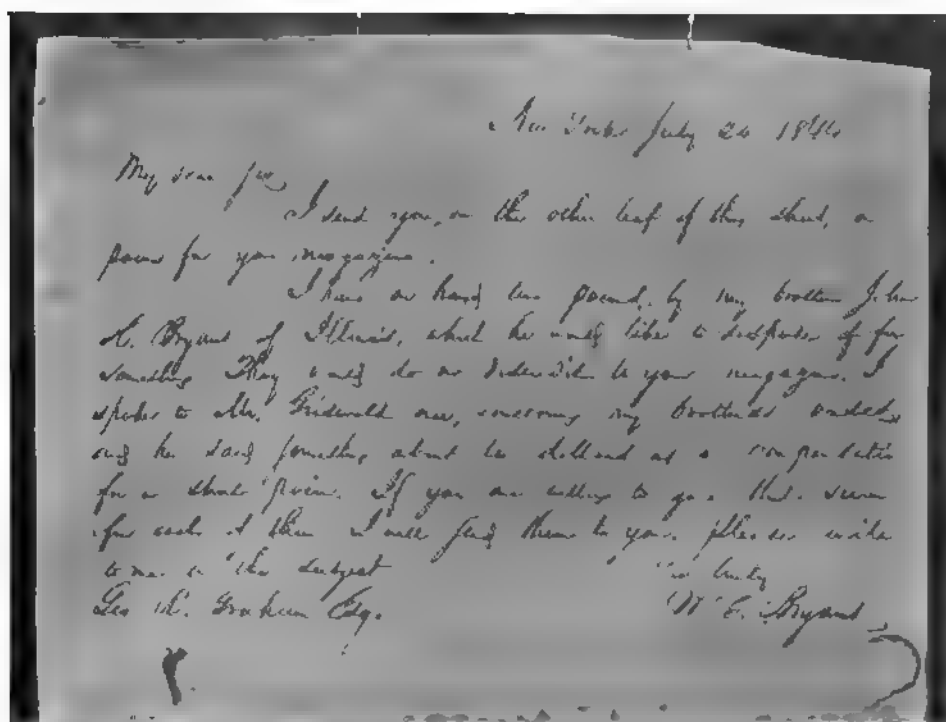 New York July 24 1844
My dear Sir
I send you, on the other leaf of this sheet, a
poem for your magazine.
I have on hand two poems by my brother John
H. Bryant of Illinois, which he would like to dispose of for
something. They would do no discredit to your magazine. I
spoke to Mr. Griswold once, concerning my brother's
and he said something about ten dollars as a compensation
for a short poem. If you are willing to give that sum
for each of them I will send them to you. Please write
to me on the subject
Yrs truly
Geo R. Graham Esq.
W. C. Bryant